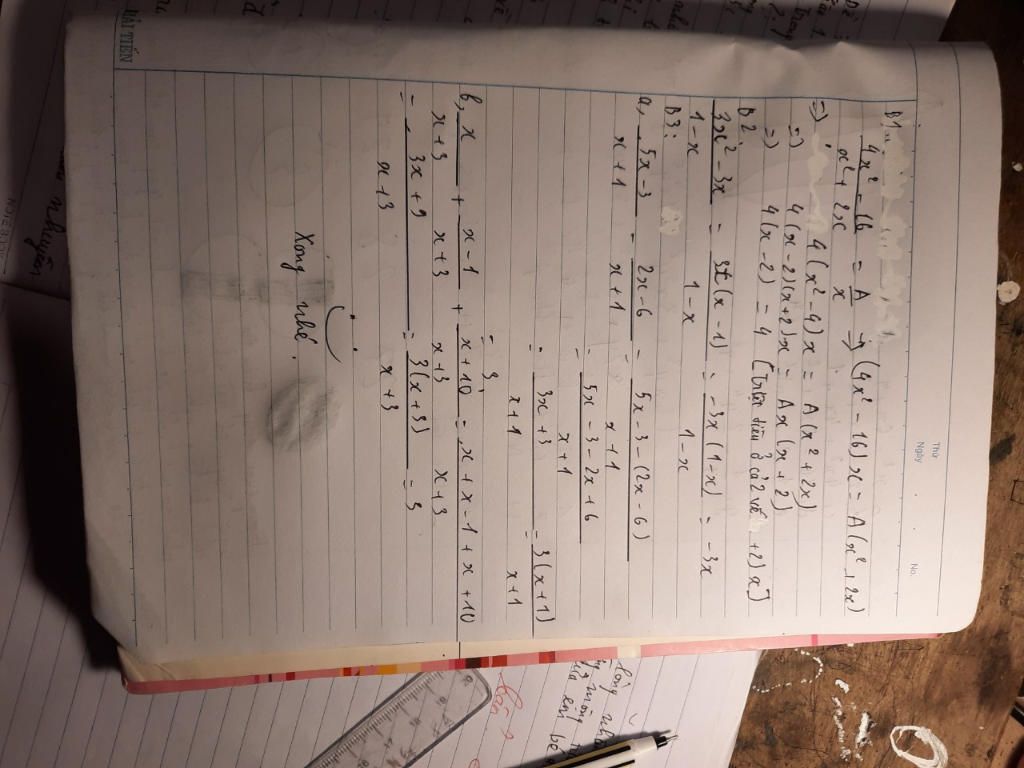 Thứ
Ngày
No.
B1:
4x² - 16 / x² + 2x = A / x => (4x² - 16)x = A(x² + 2x)
=> 4(x² - 4)x = A(x² + 2x)
=> 4(x - 2)(x + 2)x = Ax(x + 2)
=> 4(x - 2) = A [triệt tiêu ở cả 2 vế + 2)x]
B2:
3x² - 3x / 1 - x = 3x(x - 1) / 1 - x = -3x(1 - x) / 1 - x = -3x
B3:
a, 5x - 3 / x + 1 - 2x - 6 / x + 1 = 5x - 3 - (2x - 6) / x + 1
= 5x - 3 - 2x + 6 / x + 1
= 3x + 3 / x + 1 = 3(x + 1) / x + 1
= 3
b, x / x + 3 + x - 1 / x + 3 + x + 10 / x + 3 = x + x - 1 + x + 10 / x + 3
= 3x + 9 / x + 3 = 3(x + 3) / x + 3 = 3
Xong nhé.
HẢI TIẾN